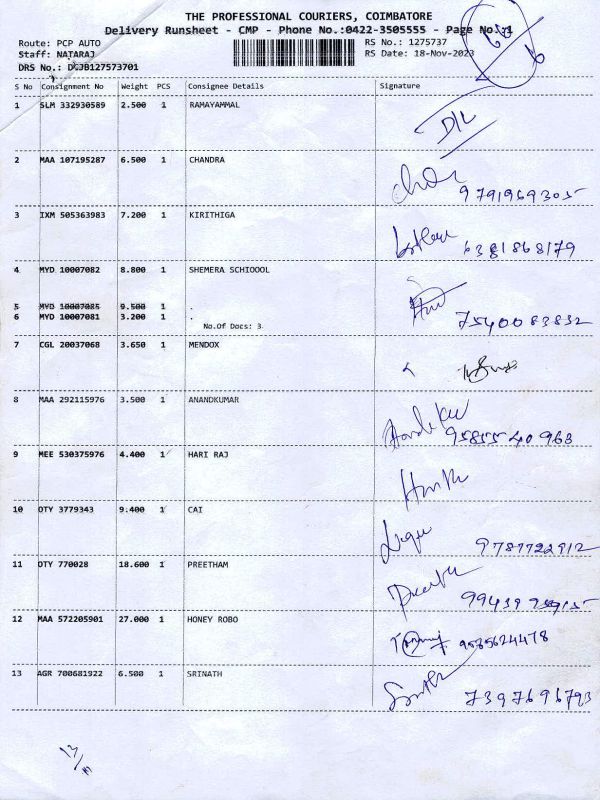 THE PROFESSIONAL COURIERS, COIMBATORE
Delivery Runsheet - CMP - Phone No.:0422-3505555 - Page No.:1
Route: PCP AUTO
RS No.: 1275737
Staff: NATARAJ
RS Date: 18-Nov-2023
DRS No.: DCJB127573701
S No Consignment No Weight PCS Consignee Details Signature
1 SLM 332930589 2.500 1 RAMAYAMMAL
D/L
2 MAA 107195287 6.500 1 CHANDRA
9791969305
3 IXM 505363983 7.200 1 KIRITHIGA
6381868179
4 MYD 10007082 8.800 1 SHEMERA SCHIOOOL
5 MYD 10007085 9.500 1 .
6 MYD 10007081 3.200 1 .
No.Of Docs: 3
7540083832
7 CGL 20037068 3.650 1 MENDOX
8 MAA 292115976 3.500 1 ANANDKUMAR
9585540968
9 MEE 530375976 4.400 1 HARI RAJ
10 OTY 3779343 9.400 1 CAI
9787722912
11 OTY 770028 18.600 1 PREETHAM
12 MAA 572205901 27.000 1 HONEY ROBO
9585624478
13 AGR 700681922 6.500 1 SRINATH
7397696793